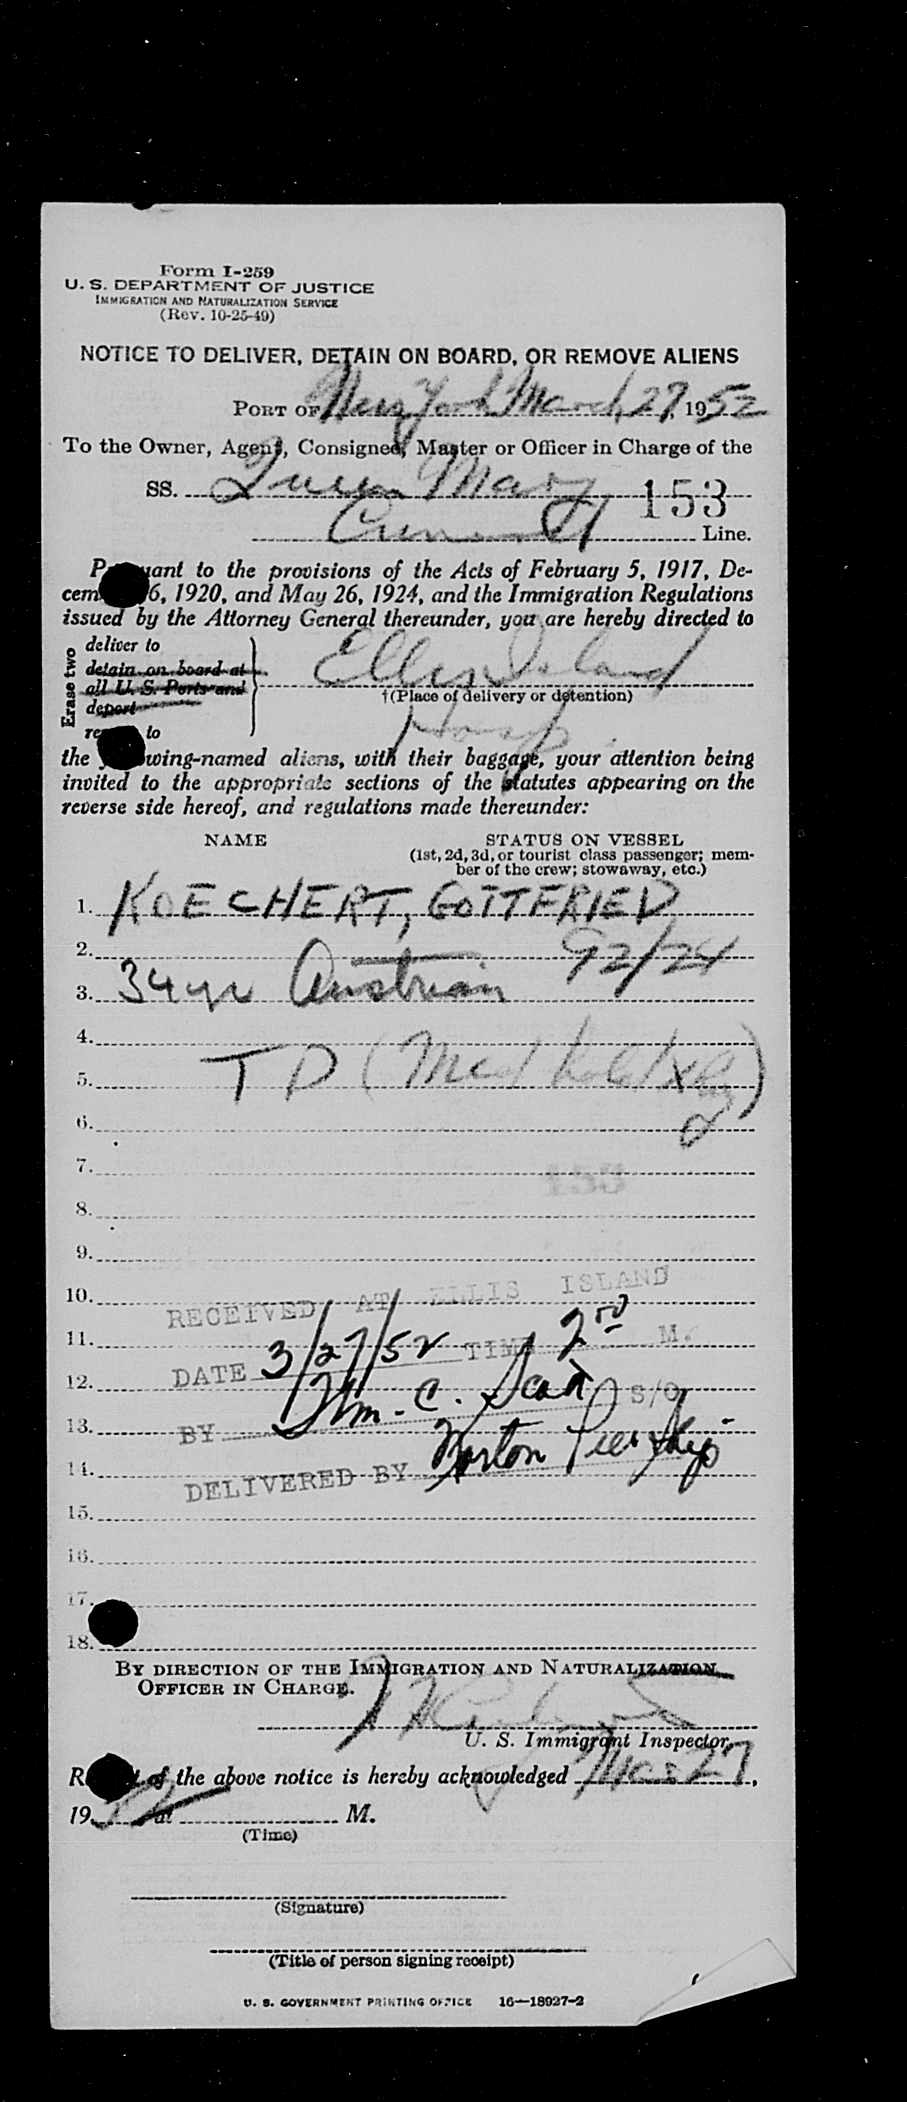 Form I-259
U. S. DEPARTMENT OF JUSTICE
IMMIGRATION AND NATURALIZATION SERVICE
(Rev. 10-25-49)
NOTICE TO DELIVER, DETAIN ON BOARD, OR REMOVE ALIENS
PORT OF New York March 27, 1952
To the Owner, Agent, Consignee, Master or Officer in Charge of the
SS. Queen Mary 153
Line.
Pursuant to the provisions of the Acts of February 5, 1917, De-
cem 6, 1920, and May 26, 1924, and the Immigration Regulations
issued by the Attorney General thereunder, you are hereby directed to
Erase two
deliver to
detain on board at
all U. S. Ports and
deport
to
Ellis Island
†(Place of delivery or detention)
Hosp.
the wing-named aliens, with their baggage, your attention being
invited to the appropriate sections of the statutes appearing on the
reverse side hereof, and regulations made thereunder:
NAME STATUS ON VESSEL
(1st, 2d, 3d, or tourist class passenger; mem-
ber of the crew; stowaway, etc.)
1. KOECHERT, GOTTFRIED
2. 92/24
3. 34 yr Austrian
4.
5. T D (Med hold
6.
7. 153
8.
9.
10. RECEIVED AT ELLIS ISLAND
11. DATE 3/27/52 TIME 2 00 M.
12. Wm. C. S/O
13. BY
14. DELIVERED BY Norton
15.
16.
17.
18.
BY DIRECTION OF THE IMMIGRATION AND NATURALIZATION
OFFICER IN CHARGE.
U. S. Immigrant Inspector.
of the above notice is hereby acknowledged Mar 27,
1952 at M.
(Time)
(Signature)
(Title of person signing receipt)
U. S. GOVERNMENT PRINTING OFFICE 16—18927-2